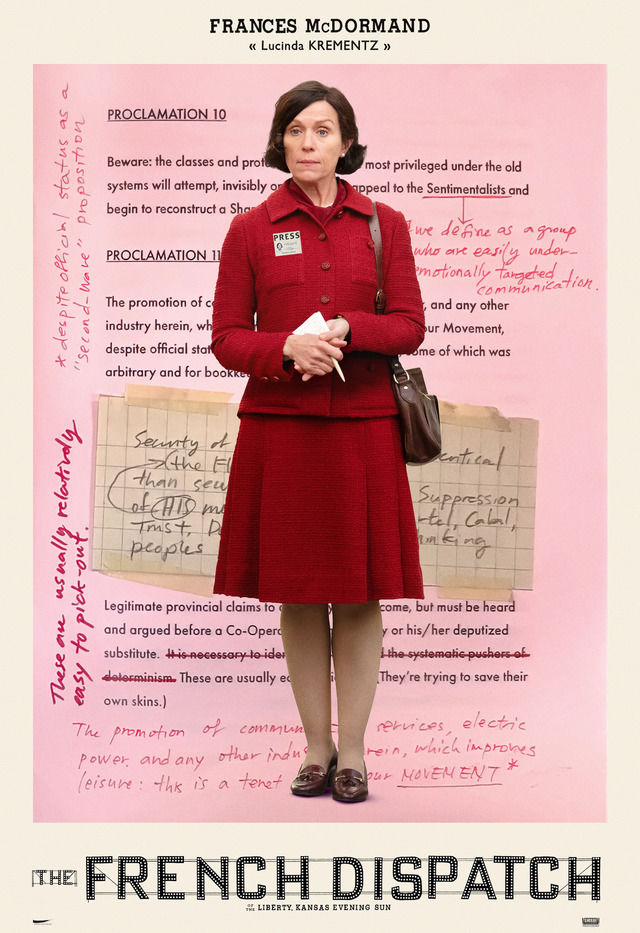 FRANCES McDORMAND
« Lucinda KREMENTZ »
* despite official status as a
"second-wave" proposition
PROCLAMATION 10
Beware: the classes and most privileged under the old
systems will attempt, invisibly appeal to the Sentimentalists and
begin to reconstruct a
we define as a group
who are easily under-
emotionally targeted
communication.
PRESS
PROCLAMATION 11
The promotion of and any other
industry herein, our Movement,
despite official of which was
arbitrary and for
These are usually relatively
easy to pick-out.
Security of
than
of HIS
Trust,
peoples
Suppression
Cabal,
Legitimate provincial claims to come, but must be heard
and argued before a or his/her deputized
substitute. It is necessary to the systematic pushers of
determinism. These are usually (They're trying to save their
own skins.)
The promotion of services, electric
power and any other which improves
leisure: this is a tenet our MOVEMENT *
THE FRENCH DISPATCH
OF THE LIBERTY, KANSAS EVENING SUN